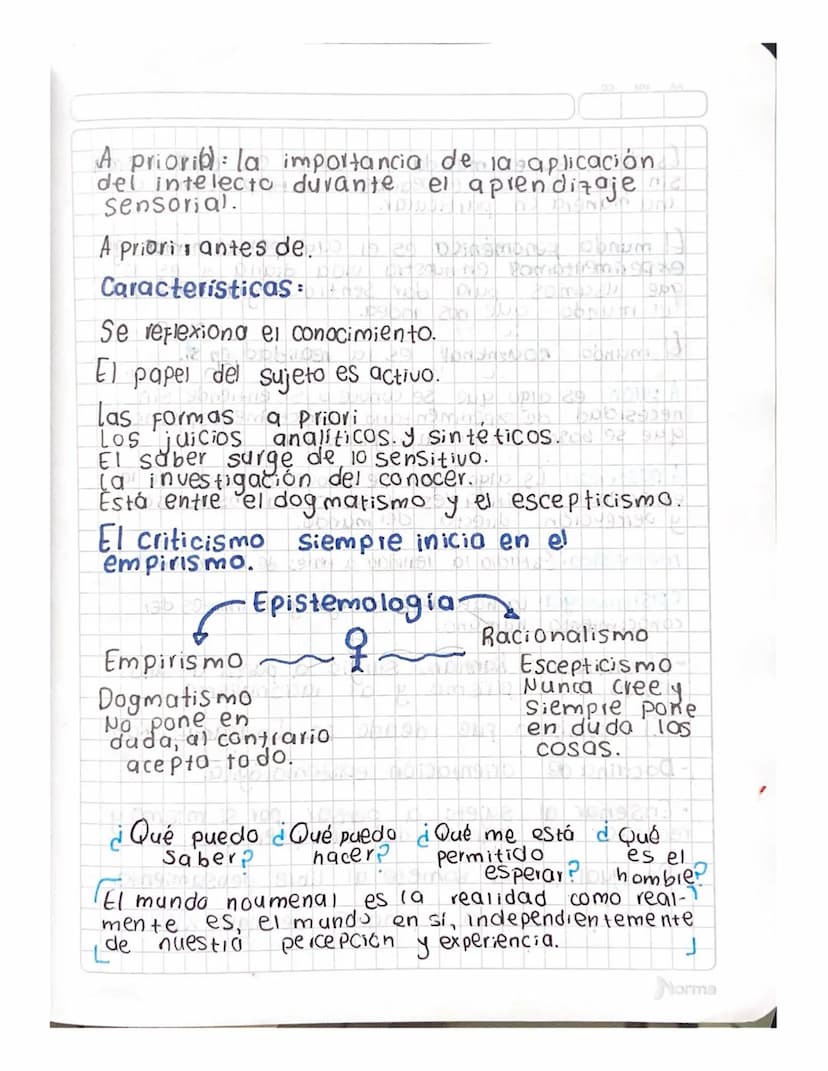 A priori: la importancia de la aplicación
del intelecto durante el aprendizaje
sensorial.
A priori: antes de.
Características:
Se reflexiona el conocimiento.
El papel del sujeto es activo.
Las formas a priori
Los juicios analíticos. y sintéticos.
El saber surge de lo sensitivo.
La investigación del conocer.
Está entre el dogmatismo y el escepticismo.
El criticismo siempre inicia en el
empirismo.
Epistemología
Empirismo
Dogmatismo
No pone en
duda, al contrario
acepta todo.
Racionalismo
Escepticismo
Nunca cree y
siempre pone
en duda las
cosas.
¿Qué puedo saber?
¿Qué puedo hacer?
¿Qué me está permitido esperar?
¿Qué es el hombre?
El mundo noumenal es la realidad como real-
mente es, el mundo en sí, independientemente
de nuestra percepción y experiencia.
Norma